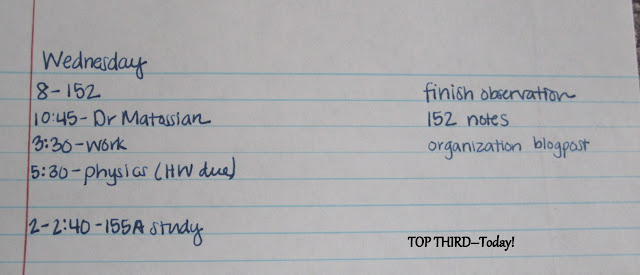 Wednesday
8-152
10:45-Dr Matossian
3:30-work
5:30-physics (HW due)
2-2:40-155A study
finish observation
152 notes
organization blogpost
TOP THIRD--Today!